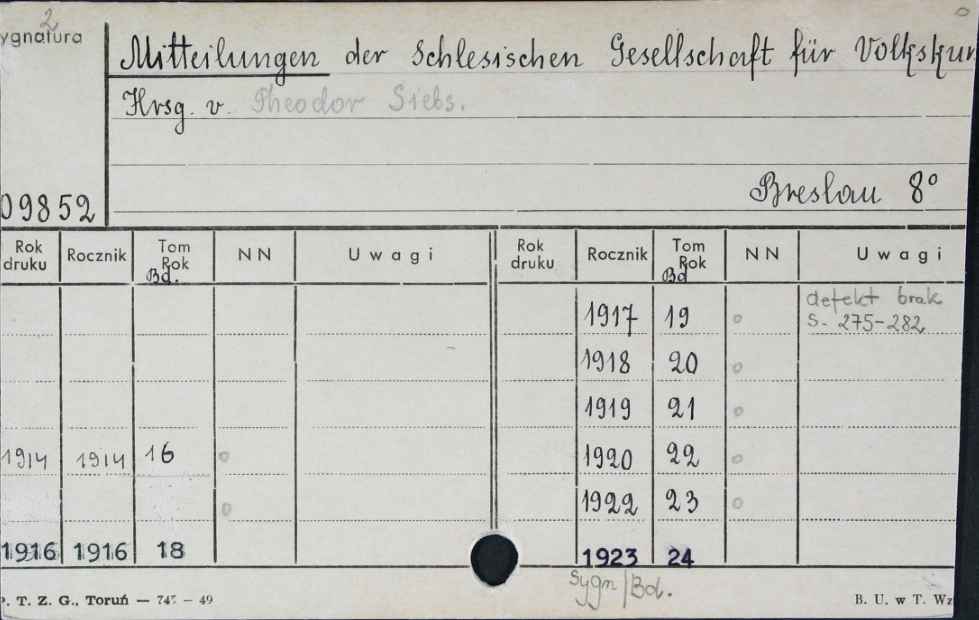 2
ygnatura
Mitteilungen der Schlesischen Gesellschaft für Volkskun
Hrsg. v. Theodor Siebs.
09852
Breslau 8°
Rok druku Rocznik Tom Rok Bd. NN Uwagi Rok druku Rocznik Tom Rok Bd NN Uwagi
1917 19 defekt brak
S. 275-282
1918 20
1919 21
1914 1914 16 1920 22
1922 23
1916 1916 18 1923 24
Sygn/Bd.
P. T. Z. G., Toruń — 49 B. U. w T. Wz